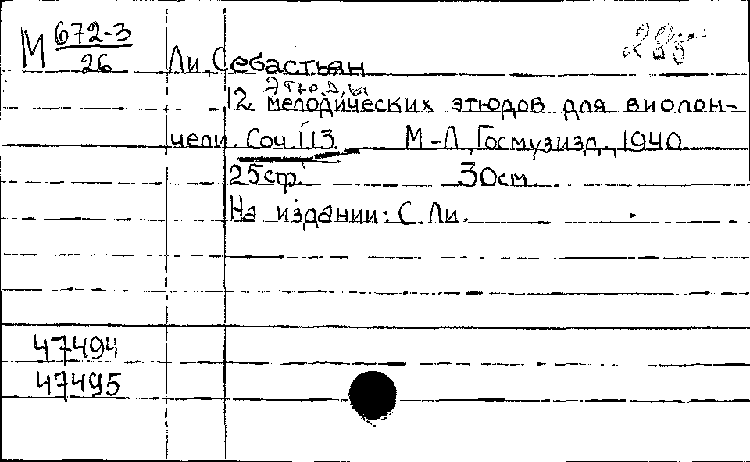 М 672-3
26
Ли, Себастьян
Этюды
12 мелодических этюдов для виолон-
чели. Соч. 113. М-Л, Госмузизд., 1940.
25стр. 30см
На издании: С. Ли.
47494
47495